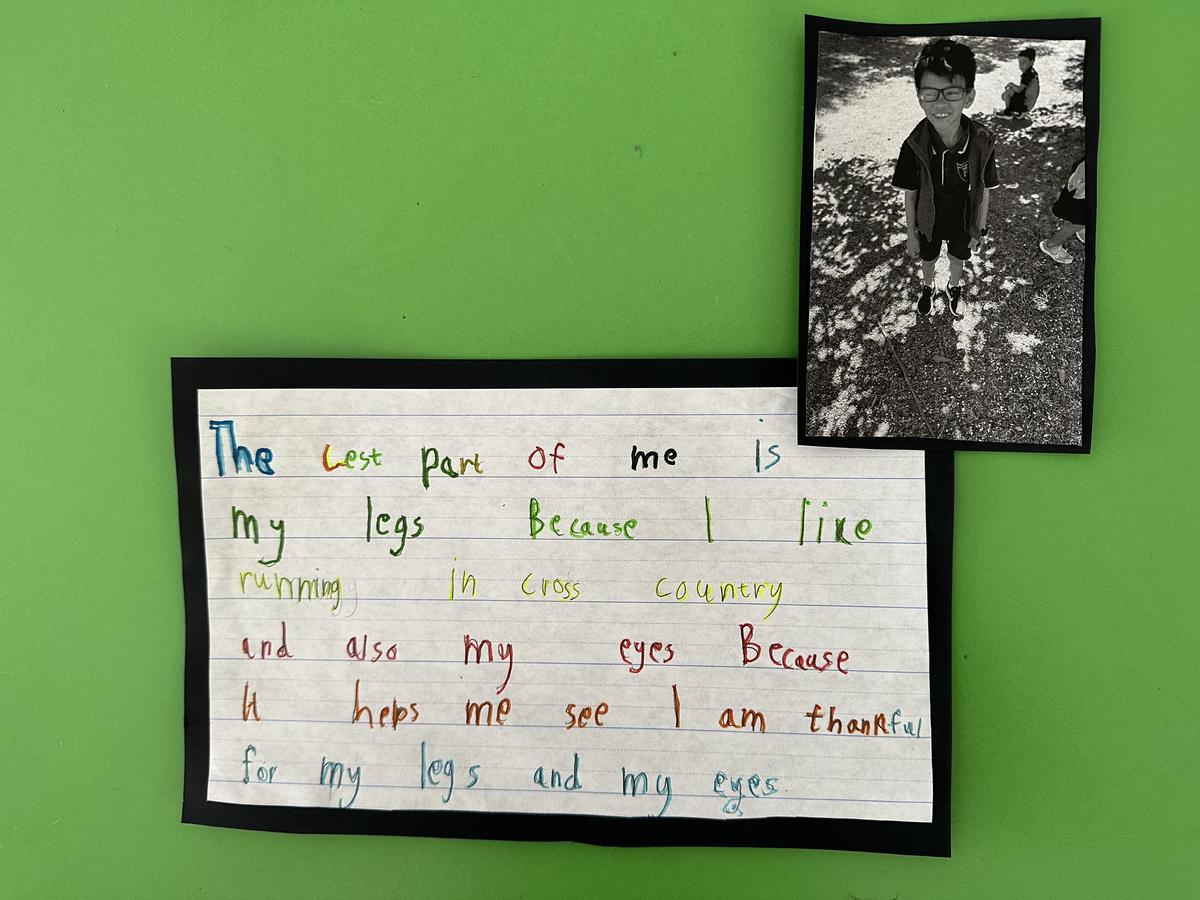 The best part of me is
my legs Because I like
running in cross country
and also my eyes Because
It heps me see I am thankful
for my legs and my eyes.